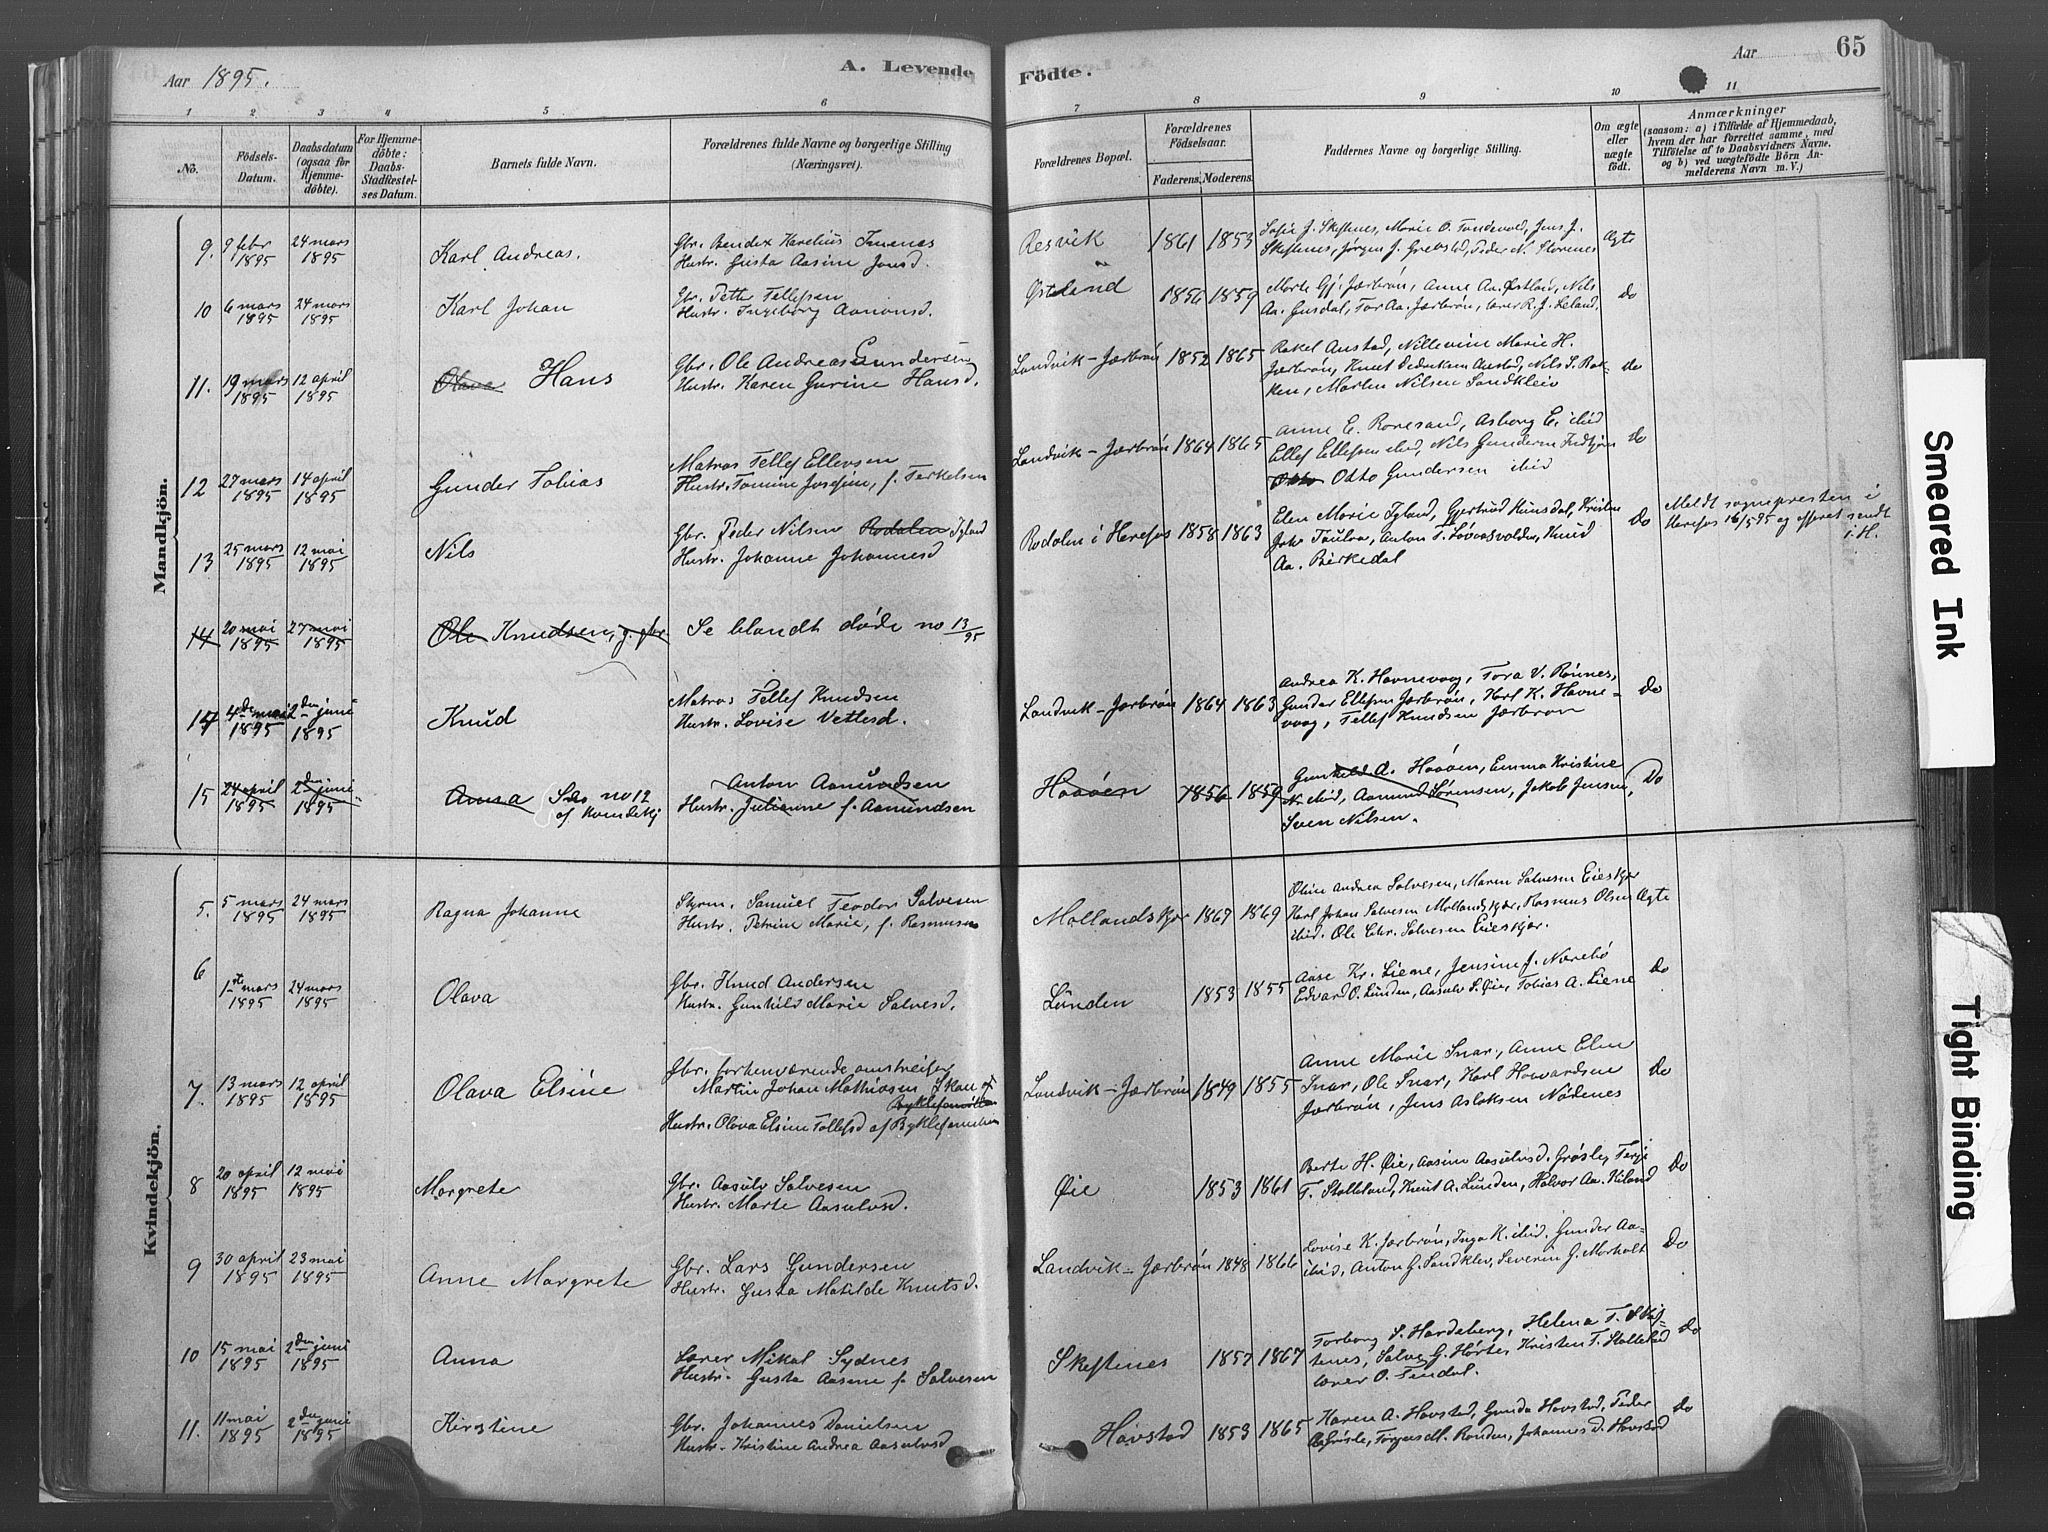 Aar 1895.
A. Levende Födte.
Aar
65
1 2 3 4 5 6 7 8 9 10 11
No.
Födsels-Datum.
Daabsdatum (ogsaa for Hjemme-döbte).
For Hjemme-döbte: Daabs-Stadfæstelses Datum.
Barnets fulde Navn.
Forældrenes fulde Navne og borgerlige Stilling (Næringsvei).
Forældrenes Bopæl.
Forældrenes Födselsaar.
Faderens. Moderens.
Faddernes Navne og borgerlige Stilling.
Om ægte eller uægte födt.
Anmærkninger
(saasom: a) i Tilfælde af Hjemmedaab, hvem der har forrettet samme, med Tilföielse af to Daabsvidners Navne, og b) ved uægtefödte Börn Anmelderens Navn m. V.)
Mandkjön.
9. 9 febr 1895 24 mars 1895 Karl Andreas.
Gbr. Bendix Karelius
Hustr. Gusta Aasine Jonsd.
Resvik 1861 1853
Sofie J. Skeftenes, Marie O. Tondevold, Jens J.
Skeftenes, Jørgen J. Grebstad, Peder N. Storenes
Ægte
10 6 mars 1895 24 mars 1895 Karl Johan
Gbr. Petter Tellefsen
Hustr. Ingeborg Aanonsd.
Østlend 1856 1859
Marte Gj. Jærbrøn, Anne Aa. Østlend, Nils
Aa. Gusdal, Tor Aa. Jærbrøn, lærer R. J. Leland.
do
11. 19 mars 1895 12 april 1895 Olava Hans
Gbr. Ole Andreas Gundersen
Hustr. Karen Gurine Hansd.
Landvik - Jærbrøn 1852 1865
Rakel Austad, Nillevine Marie H.
Jærbrøn, Knut Austad, Nils S. Bak-
ken, Morten Nilsen Sandkleiv
do
12 27 mars 1895 14 april 1895 Gunder Tobias
Matros Tellef Ellevsen
Hustr. Tomine Josefine, f. Terkelsen
Landvik - Jærbrøn 1864 1865
Anne E. Roresand, Asborg E. ibid
Ellef Ellefsen ibid, Nils Gundersen
Otto Odto Gundersen ibid
Do
13 25 mars 1895 12 mai 1895 Nils
Gbr. Peder Nilsen Rodalen Igland
Hustr. Johanne Johannesd
Rodalen i Herefos 1858 1863
Elen Marie Igland, Gjertrud Kunsdal, Kristen
Aa. Birkedal
Do
Meldt sognepresten i
Herefos 16/5 95 og sendt
i H.
14 20 mai 1895 27 mai 1895 Ole Knudsen, g. gbr.
Se blandt døde no 13/95
14 4de mai 1895 2den juni 1895 Knud
Matros Tellef Knudsen
Hustr. Lovise Vetlesd.
Landvik - Jærbrøn 1864 1863
Andrea K. Havnevaag, Tora V. Rønnes,
Gunder Ellefsen Jærbrøn, Karl K. Havne-
vaag, Tellef Knudsen Jærbrøn
Do
15 24 april 1895 2den juni 1895 Anna Se no 12 af Kvindekj
Anton Aamundsen
Hustr. Julianne f. Aamundsen
Haaøen 1856 1859
Gunhild A. Haaøen, Emma Kristine
N. ibid, Aamund Sørensen, Jakob Jensen,
Sven Nilsen.
Do
Kvindekjön.
5. 5 mars 1895 24 mars 1895 Ragna Johanne
Styrm. Samuel Teodor Salvesen
Hustr. Petrine Marie, f. Rasmussen
Mollandskjær 1867 1869
Oline Andrea Salvesen, Maren Salvesen Eieskjær
Karl Johan Salvesen Mollandskjær, Rasmus Olsen
ibid. Ole Chr. Salvesen Eieskjær.
Ægte
6 1ste mars 1895 24 mars 1895 Olava
Gbr. Knud Andersen
Hustr. Gunhild Marie Salvesd.
Lunden 1853 1855
Aase Kr. Liene, Jensine J. Nærebø
Edvard O. Lunden, Aasulv S. Øie, Tobias A. Liene
Do
7. 13 mars 1895 12 april 1895 Olava Elsine
Gbr. forhenværende omstreifer
Martin Johan Mathiasen Skau af
Byklefamilien
Hustr. Olava Elsine Tollefsd af Byklefamilien
Landvik - Jærbrøn 1849 1855
Anne Marie Inar, Anne Elen
Inar, Ole Inar, Karl Howardsen
Jærbrøn, Jens Aslaksen Nødenes
Do
8 20 april 1895 12 mai 1895 Margrete
Gbr. Aasulv Salvesen
Hustr. Marte Aasulvsd.
Øie 1853 1861
Berte H. Øie, Aasine Aasulvsd. Grøsle, Terje
T. Stalleland, Knut A. Lunden, Halvor Aa. Kiland
Do
9 30 april 1895 23 mai 1895 Anne Margrete
Gbr. Lars Gundersen
Hustr. Gusta Matilde Knutsd.
Landvik - Jærbrøn 1848 1866
Lovise K. Jærbrøn, Inga K. ibid. Gunder Aa-
ibid, Anton G. Sandklev, Severin G. Morholt
Do
10 15 mai 1895 2den juni 1895 Anna
Lærer Mikal Sydnes
Hustr. Gusta Aasine f. Salvesen
Skeftenes 1857 1867
Torborg S. Hardeberg, Helena T. Skef-
tenes, Salve G. Hørte, Kristen T. Stalleland
lærer O. Tindal.
Do
11. 11 mai 1895 2den juni 1895 Kirstine
Gbr. Johannes Danielsen
Hustr. Kristine Andrea Aasulvsd
Havstad 1853 1865
Karen A. Havstad, Gunda Havstad, Peder
A. Grøsle, Torgens M. Randen, Johannes D. Havstad
Do
Smeared Ink
Tight Binding